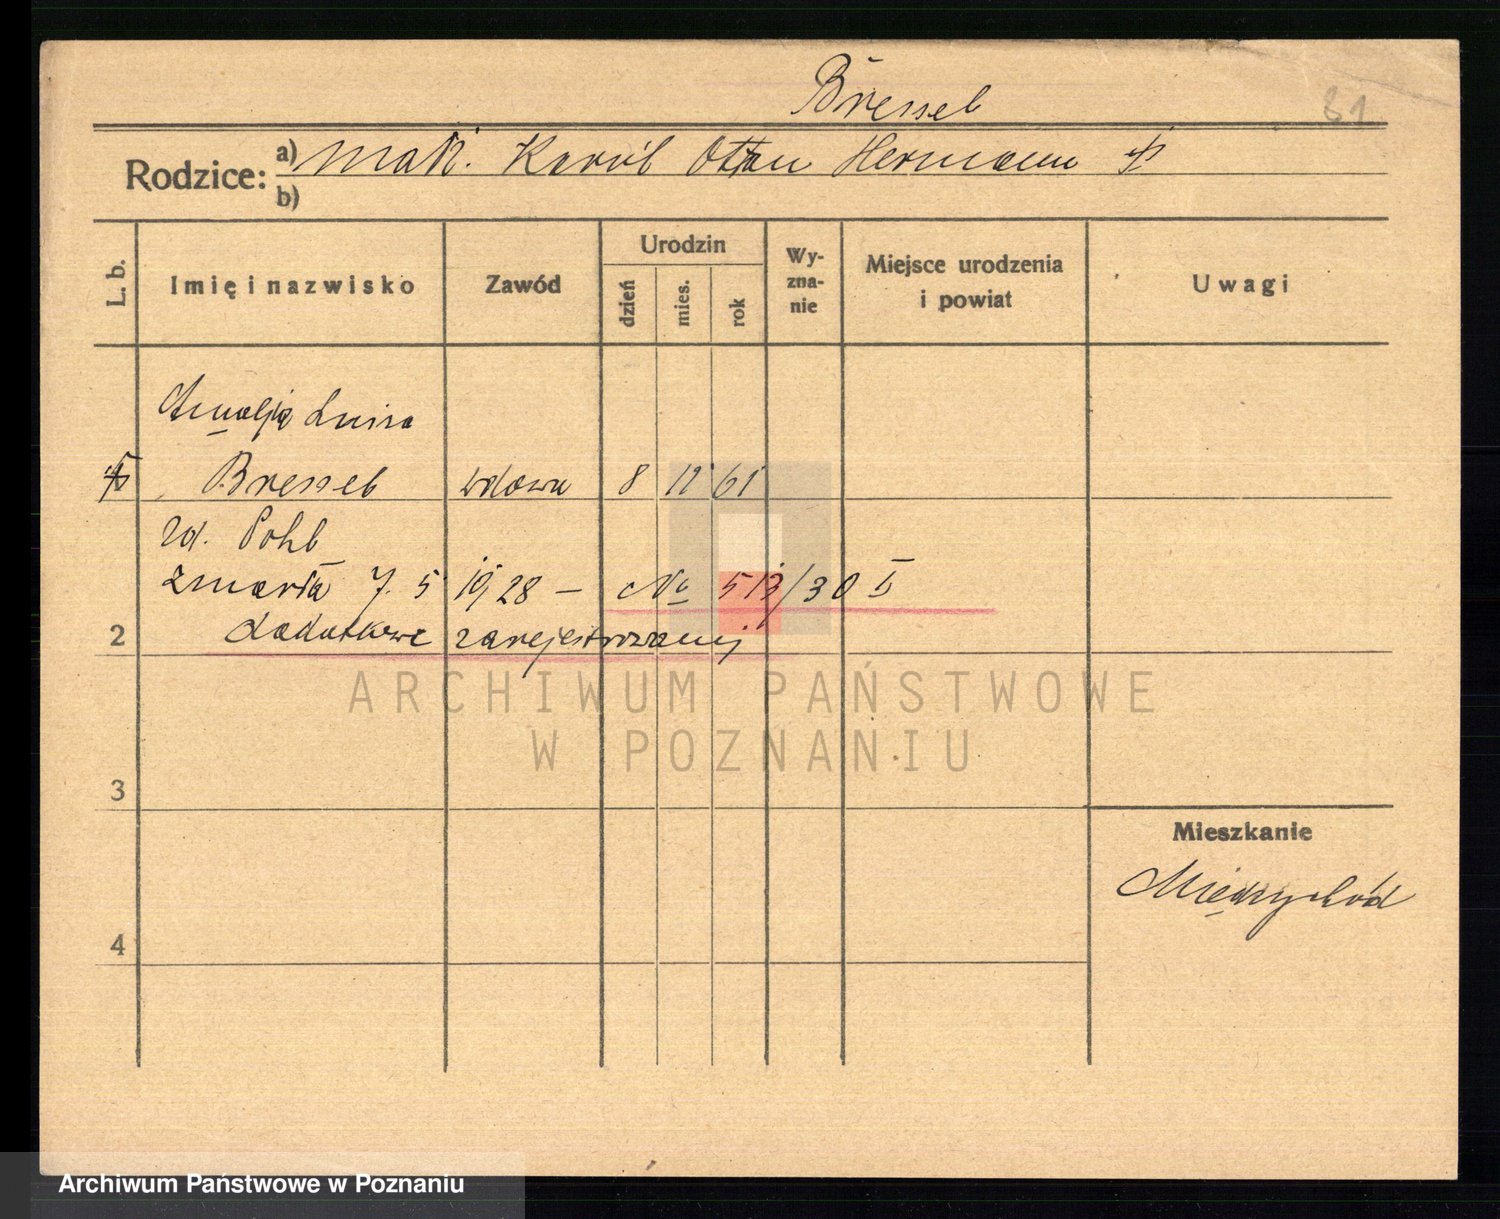 Bressel
81
Rodzice:
a) małż. Karól Otton Hermann
b)
L. b.
Imię i nazwisko
Zawód
Urodzin
dzień
mies.
rok
Wy-
zna-
nie
Miejsce urodzenia
i powiat
Uwagi
Amalja Luisa
Bressel wdowa 8 12 61
zd. Pohl
zmarła 7. 5 1928 – No 513/30 II
2 dodatkowe zarejestrowany
ARCHIWUM PAŃSTWOWE
W POZNANIU
3
Mieszkanie
Międzychód
4
Archiwum Państwowe w Poznaniu